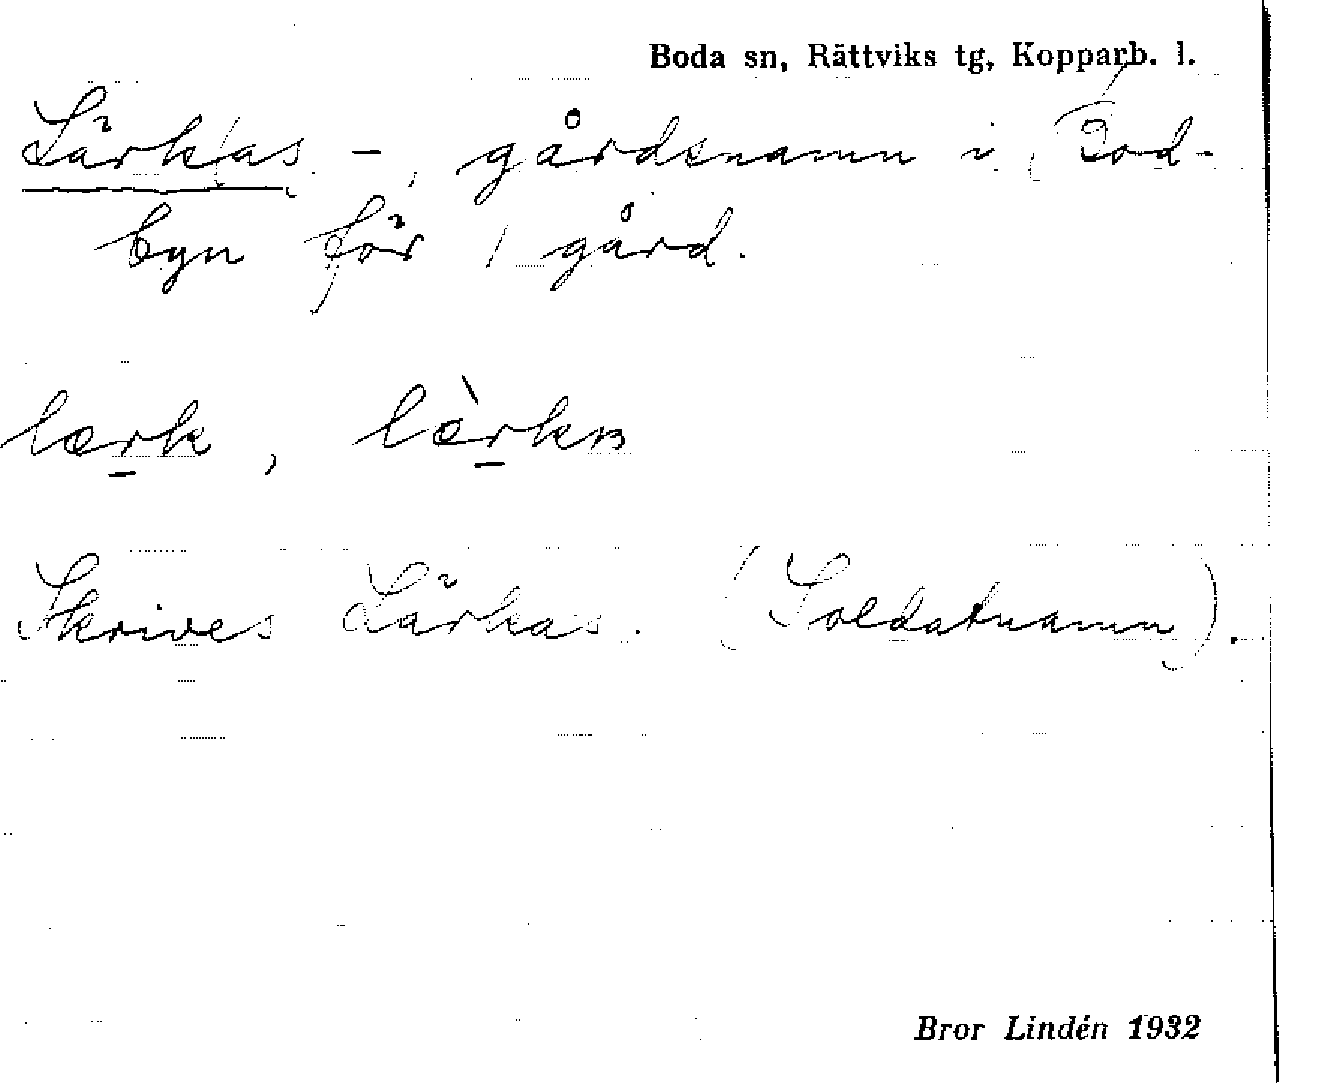 Boda sn, Rättviks tg, Kopparb. l.
Lärk|as -, gårdsnamn i Bod-
byn för 1 gård.
lærk, lærkas
Skrives Lärkas. (Soldatnamn).
Bror Lindén 1932